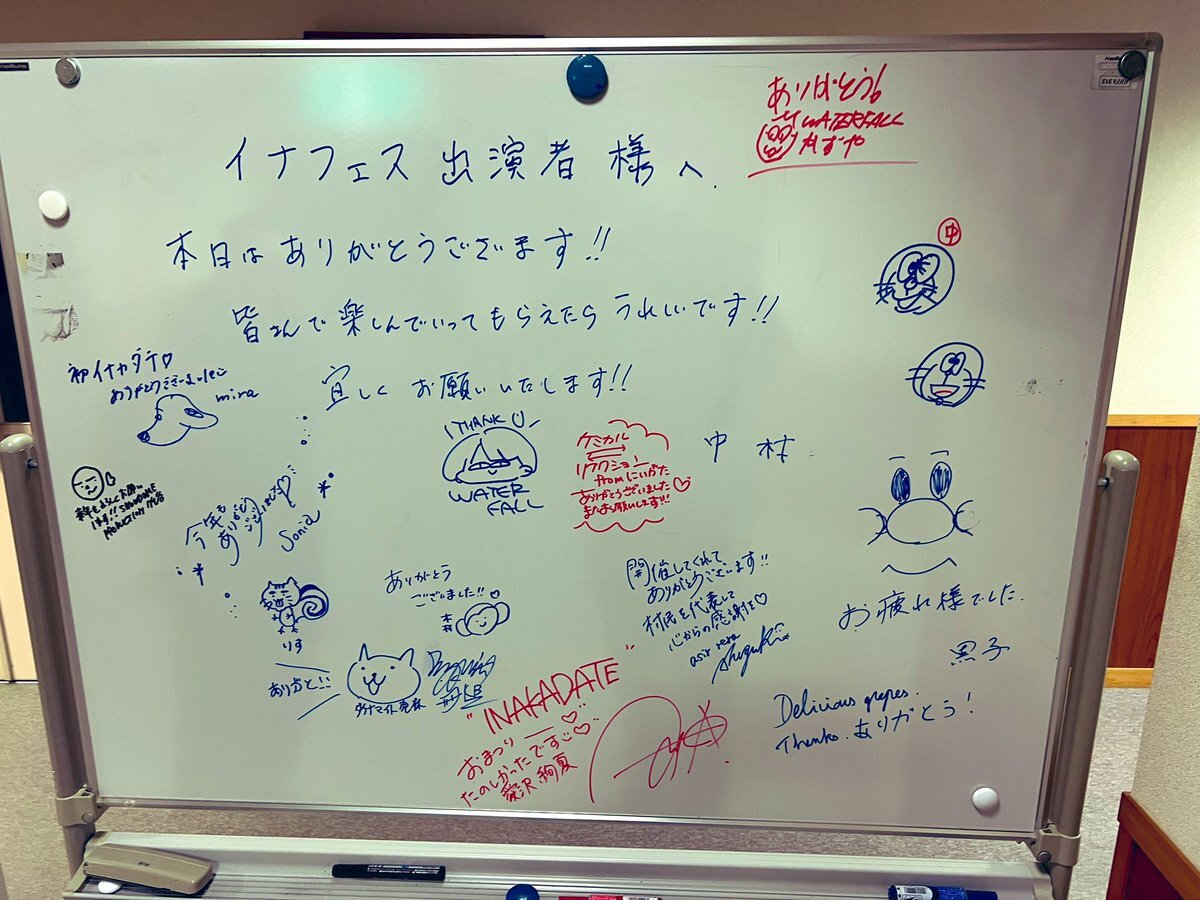 イナフェス 出演者 様へ
本日は ありがとうございます!!
皆さんで 楽しんでいって もらえたら うれしいです!!
宜しく お願いいたします!!
中村
ありがとう!
WATERFALL
かずや
中
初イナカダテ♡
ありがとうございました
mira
今年も
ありがとう
ございました♡
Sonia
THANK U
WATER
FALL
ケミカル
リアクション
from にいがた
ありがとうございました
またお願いします!!
りす
ありがと!!
ありがとう
ございました!!
開催してくれて
ありがとうございます!!
村民を代表して
心からの感謝を♡
asir rera
Suzuki
お疲れ様でした.
黒子
"INAKADATE"
おまつり
たのしかったです♡
愛沢 絢夏
Delicious grapes.
Thanks. ありがとう!